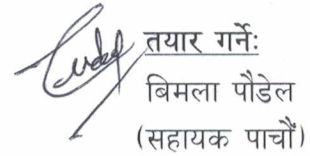 तयार गर्नेः
बिमला पौडेल
(सहायक पाचौं)